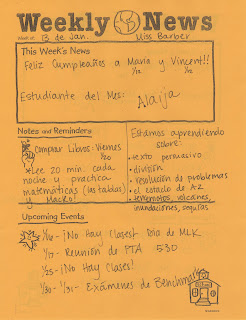 Weekly News
Week of: 13 de Jan. Miss Barber
This Week's News
Feliz Cumpleaños a Maria y Vincent!!
1/12 1/12
Estudiante del Mes: Alaija
Notes and Reminders
Comprar Libros: Viernes
1/20
Lee 20 min. cada
noche y practica
matemáticas (las tablas)
y Macro!
Estamos aprendiendo
sobre:
texto persuasivo
división
resolución de problemas
el estado de AZ
terremotos, volcanes,
inundaciones, sequías
Upcoming Events
1/16 - ¡No Hay Clases! Día de MLK
1/17 - Reunión de PTA 530
1/25 - ¡No Hay Clases!
1/30 - 1/31 - Exámenes de Benchmark